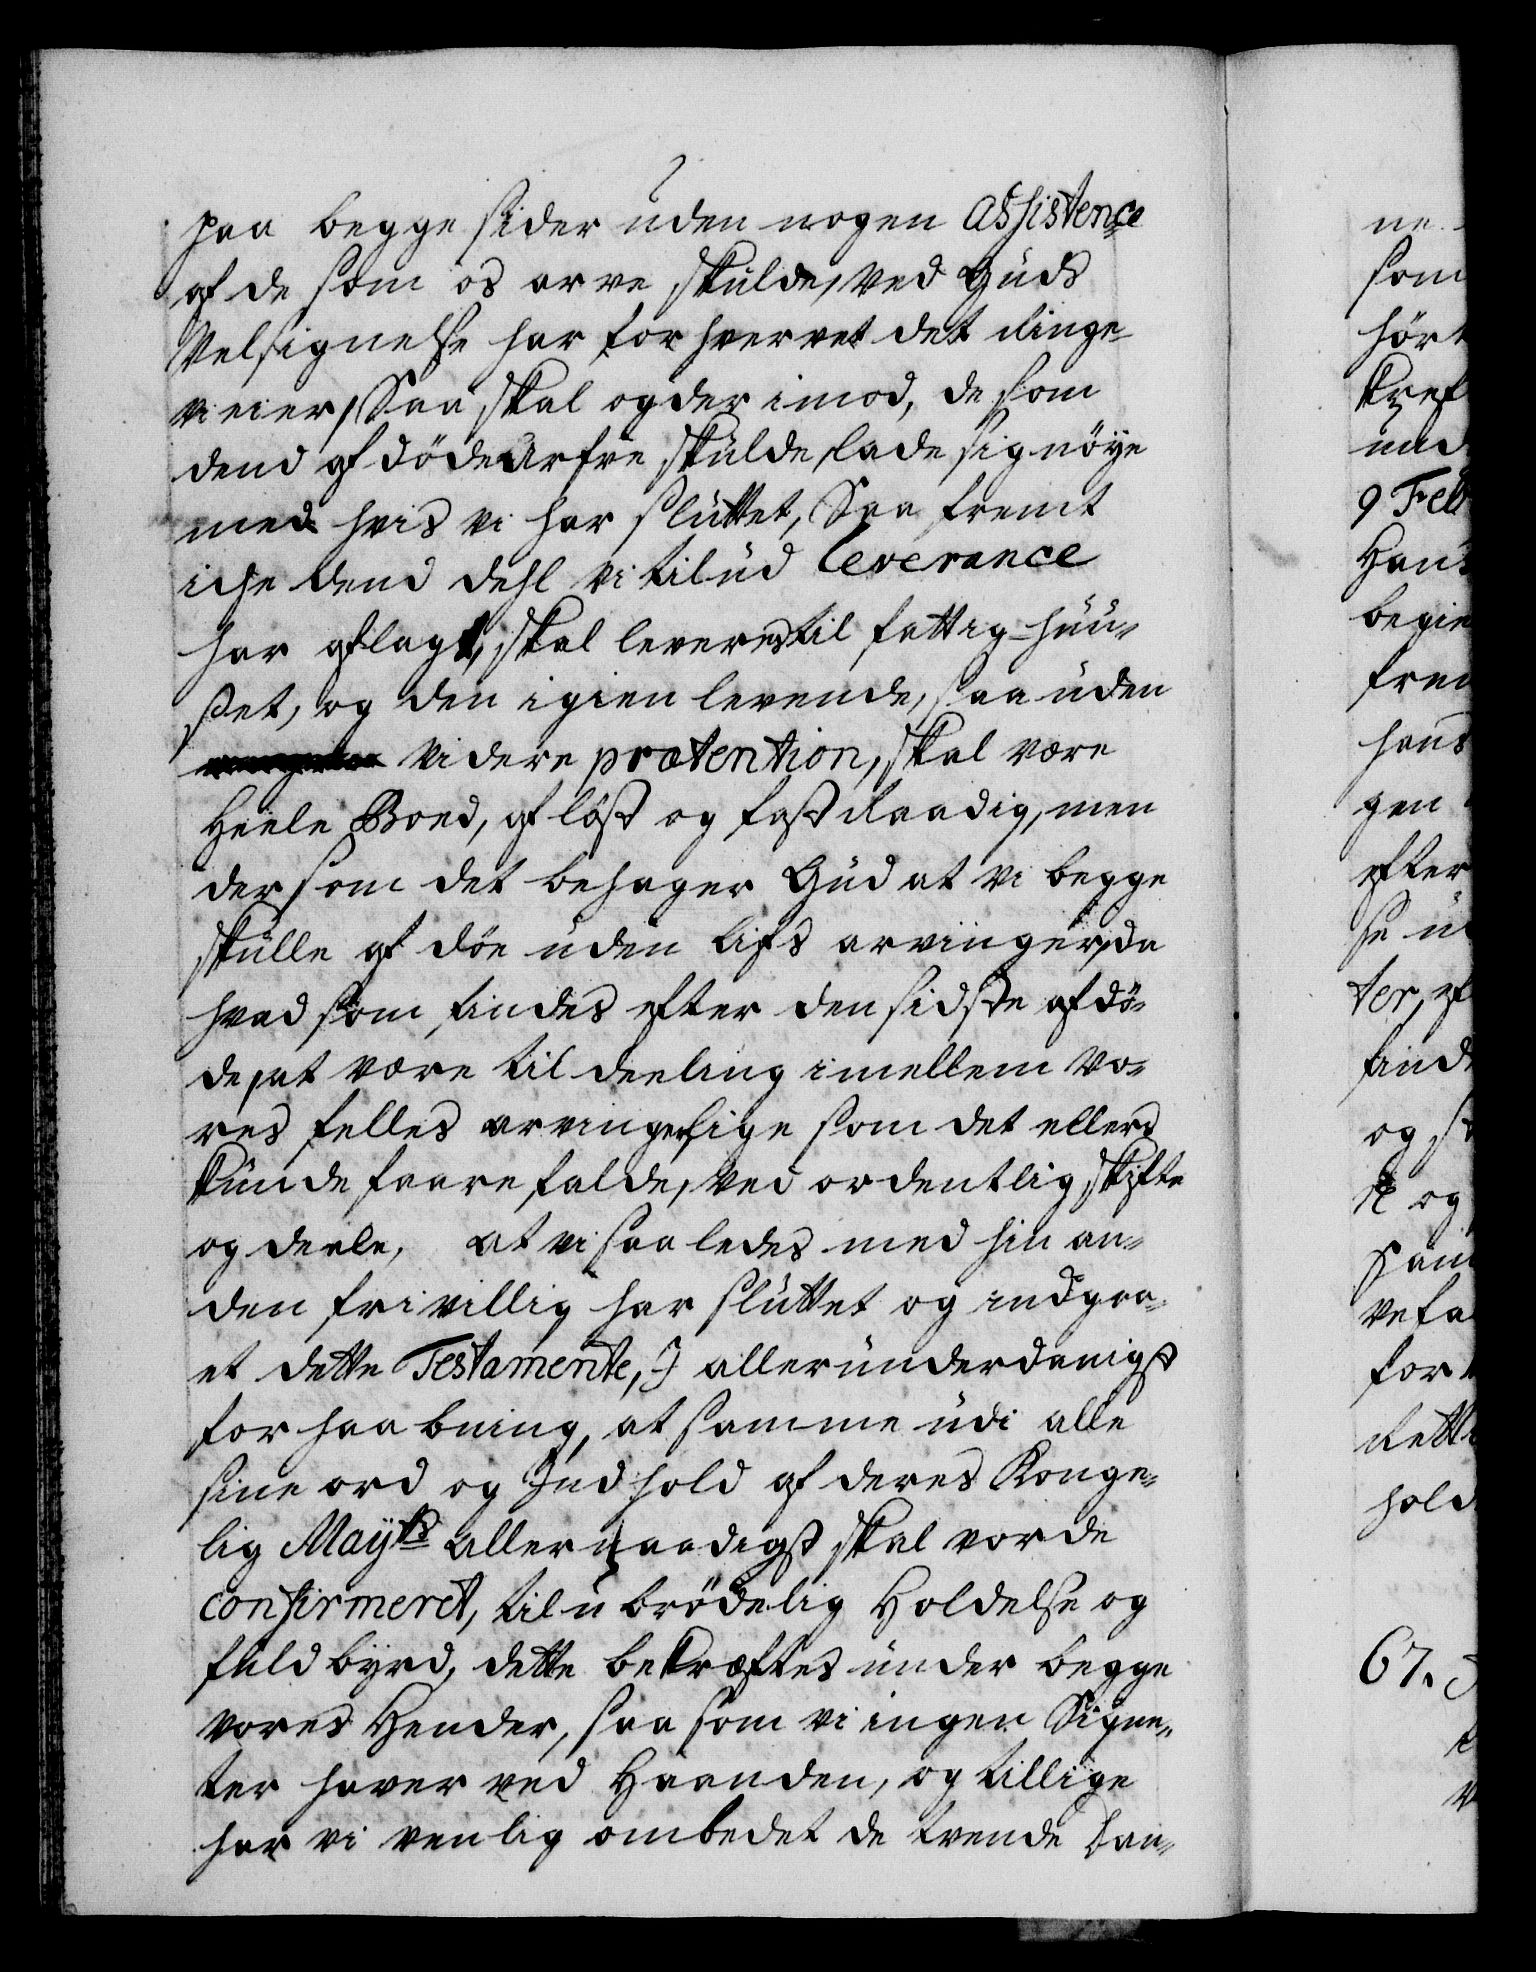 paa begge sider uden nogen Assistence
af de som os arve skulde, ved Guds
Velsignelse har forhvervet det ringe
vi eier, Saa skal og der imod, de som
dend afdöde Arfve skulde, lade sig nöye
med hvis vi har sluttet, Saa fremt
iche dend dehl vi til ud leverance
har aflagt, skal leveres til fattig-huu-
set, og den igien levende, saa uden
videre prætention, skal være
Heele Boed, af löst og fast raadig, men
dersom det behager Gud at vi begge
skulle af döe uden lifs arvinger, da
hvad som findes efter den sidste afdö-
de, at være til deeling imellem vo-
res felles arvinger lige som det ellers
kunde faarefalde, ved ordentlig skifte
og deele, at vi saaledes med hin an-
den frivillig har sluttet og indgaa-
et dette Testamente, I allerunderdanigst
forhaabning, at samme udi alle
sine ord og Indhold af deres Konge-
lig Mayts allernaadigst skal vorde
confirmeret, til ubrödelig Holdelse og
fuldbyrd, dette bekræftes under begge
vores Hender, saa som vi ingen Signe-
ter haver ved Haanden, og tillige
har vi venlig ombedet de tvende Dan-
ne
som
hört
9 Feb
Han
begie
frem
hans
gen
efter
ter, ef
find
og
og
for
rette
hold
67.